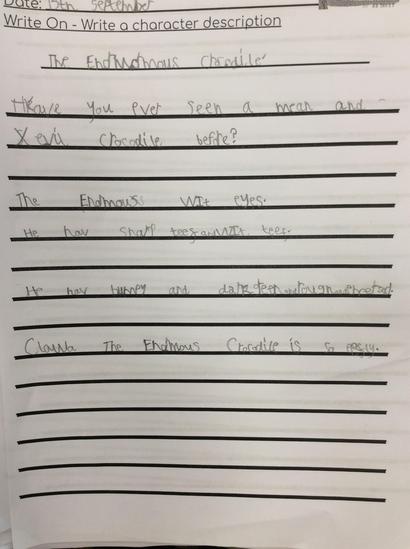 Date: 13th September
Write On - Write a character description
The Endmomous Crocodile
Have you ever seen a mean and
X evil Crocodile before?
The Endmouss wit eyes.
He hav sharp teeth and wit teet.
He hav bumpy and dark green and rough
The Endmous Crocodile is so